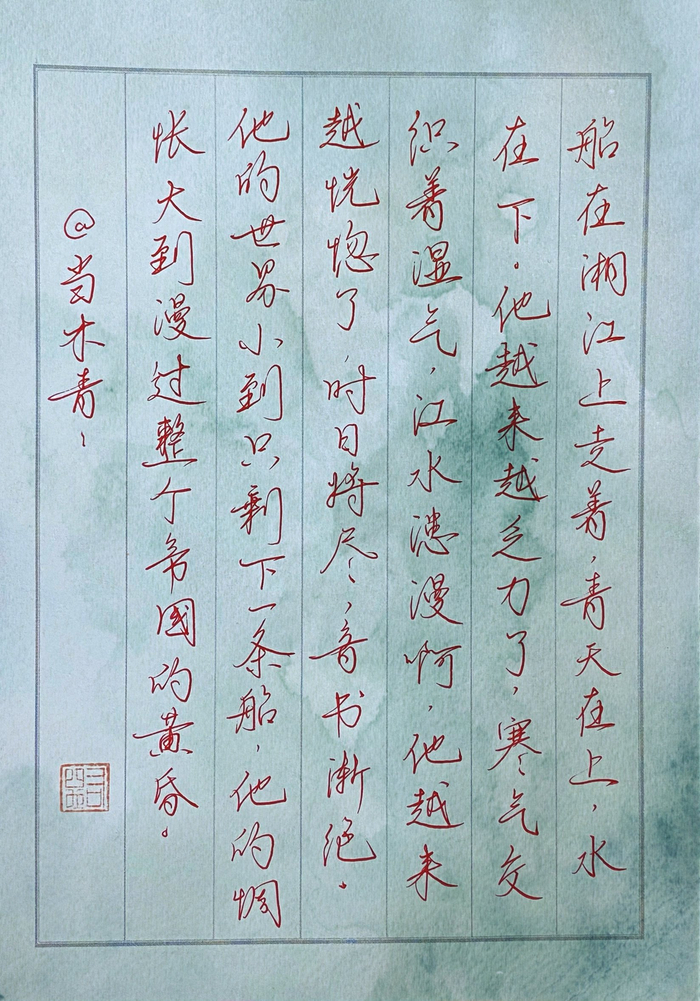 船在湘江上走着，青天在上，水
在下。他越来越乏力了，寒气交
织着湿气，江水漶漫啊，他越来
越恍惚了，时日将尽，音书渐绝。
他的世界小到只剩下一条船，他的惆
怅大到漫过整个帝国的黄昏。
@当木青、